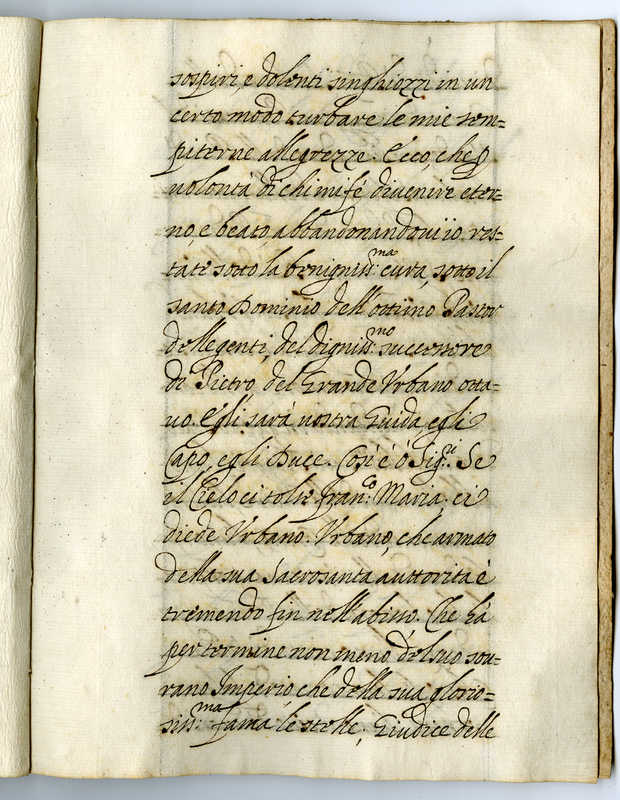 sospiri, e dolenti singhiozzi in un
certo modo turbare le mie sem=
piterne allegrezze. Ecco, che p
uolontà di chi mi fe' diuenire eter=
no, e beato abbandonandoui io res=
tate sotto la benigniss:ma cura, sotto il
santo Dominio dell'ottimo Pastor
delle genti, del digniss:mo successore
di Pietro, del Grande Vrbano otta=
uo. Egli sarà nostra Guida, egli
Capo, egli Duce. Così è ò Sig:ri Se
il Cielo ci tolse Fran:co Maria, ci
diede Vrbano. Vrbano, che armato
della sua Sacrosanta auttorità è
tremendo fin nell'abisso. Che hà
per termine non meno del suo sou=
rano Imperio, che della sua glorio=
siss:ma fama le stelle, Giudice delle